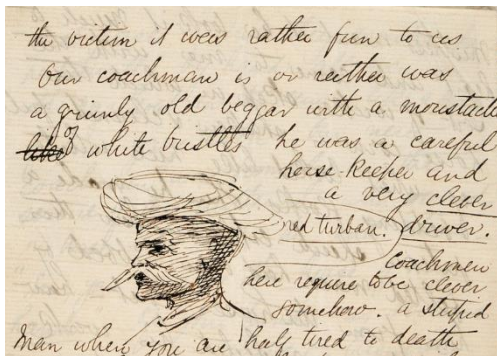 the victim it was rather fun to us
Our coachman is or rather was
a grimly old beggar with a moustache
like of white bustles he was a careful
horse-keeper and
a very clever
red turban. driver.
Coachmen
here require to be clever
somehow. a stupid
man when you are half tired to death